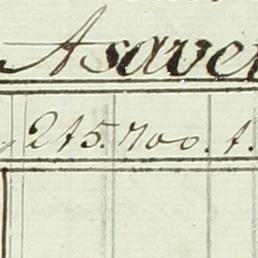 Asaver
215. 700. f.